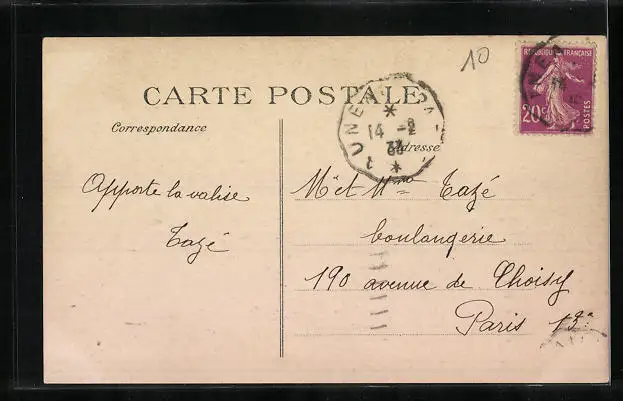 10
RÉPUBLIQUE FRANÇAISE
20c
POSTES
CARTE POSTALE
14 -8
Correspondance
Adresse
Apporte la valise
Tazé
Mr et Mme Tazé
boulangerie
190 avenue de Choisy
Paris 13e